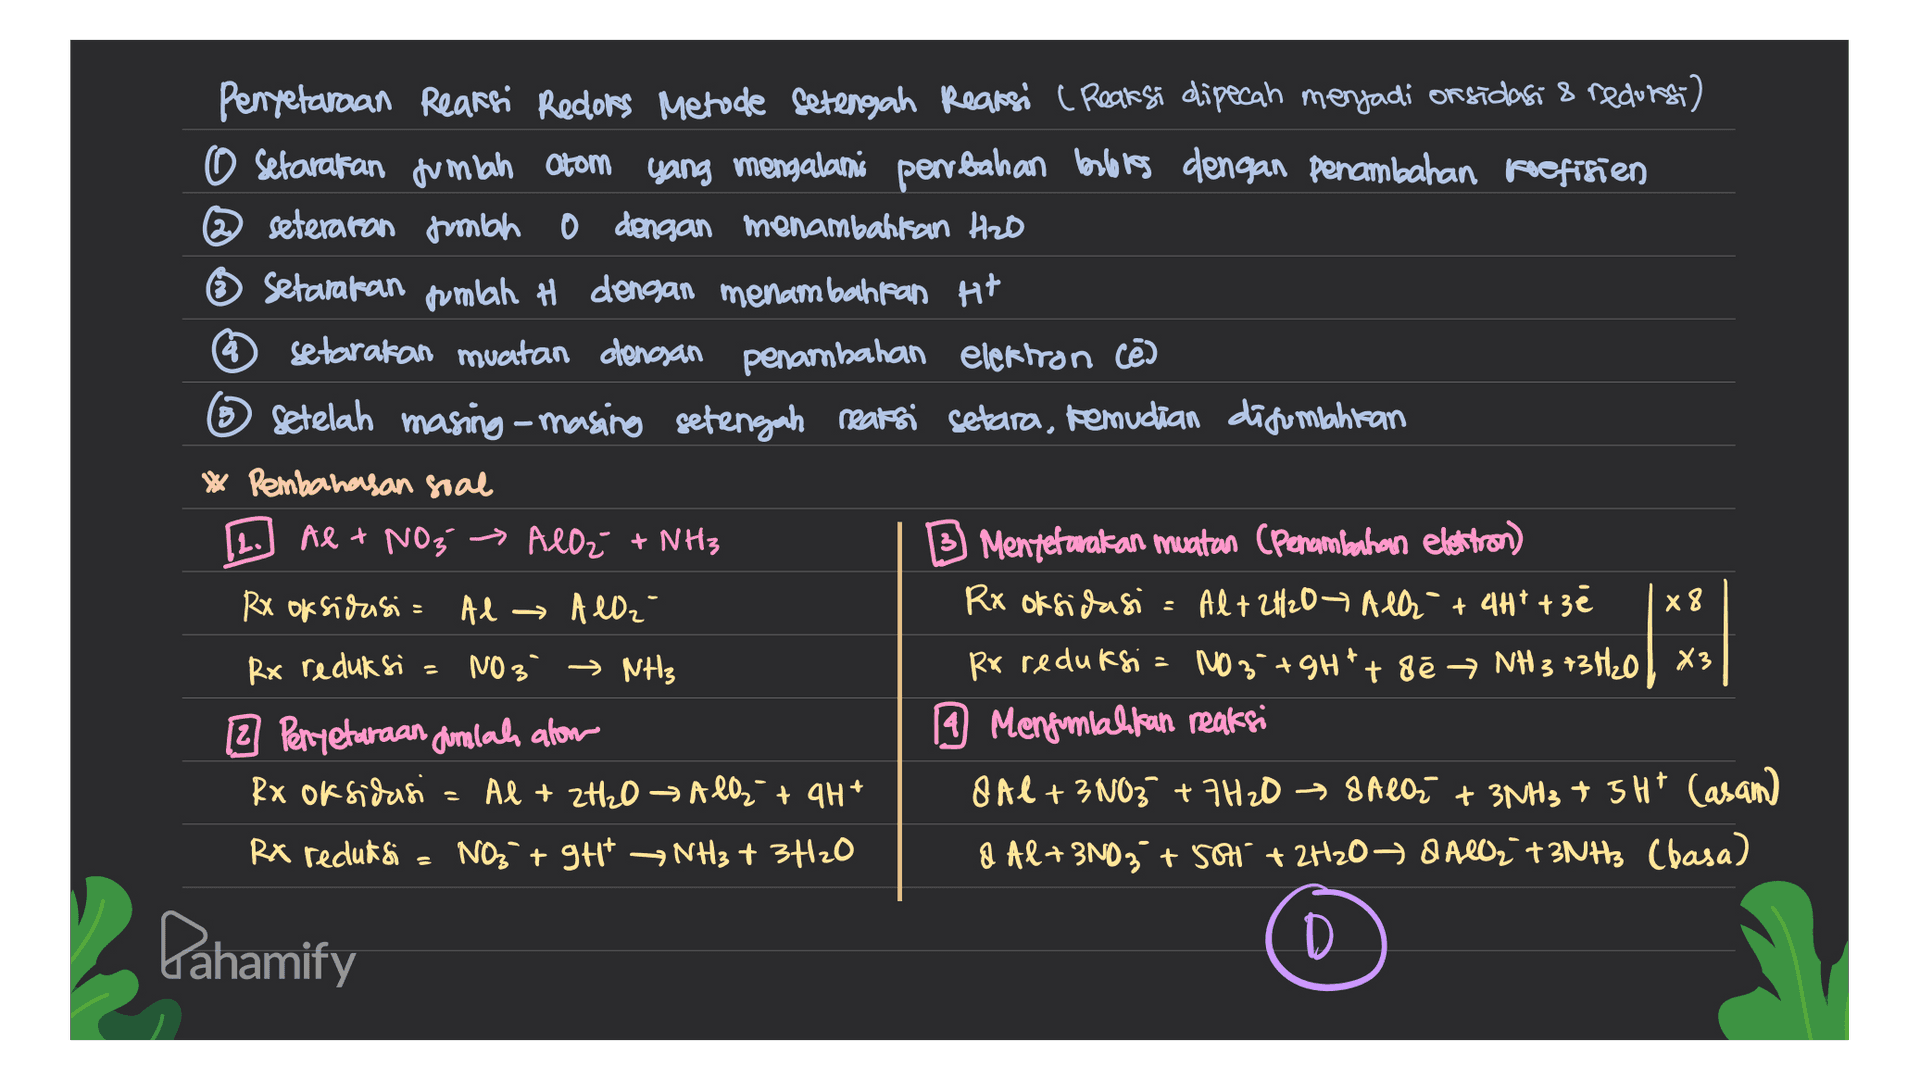 Penyetaraan Reaksi Redoks Metode Setengah Reaksi (Reaksi dipecah menjadi oksidasi & reduksi)
① Setarakan jumlah atom yang mengalami perubahan biloks dengan Penambahan koefisien
② seterakan jumlah O dengan menambahkan H₂O
③ Setarakan jumlah H dengan menambahkan H⁺
④ setarakan muatan dengan penambahan elektron (ē)
⑤ Setelah masing-masing setengah reaksi setara, kemudian dijumlahkan
* Pembahasan soal
1. Al + NO₃⁻ → AlO₂⁻ + NH₃
Rx oksidasi = Al → AlO₂⁻
Rx reduksi = NO₃⁻ → NH₃
2 Penyetaraan jumlah atom
Rx oksidasi = Al + 2H₂O → AlO₂⁻ + 4H⁺
Rx reduksi = NO₃⁻ + 9H⁺ → NH₃ + 3H₂O
3 Menyetarakan muatan (Penambahan elektron)
Rx oksidasi = Al + 2H₂O → AlO₂⁻ + 4H⁺ + 3ē | x 8 |
Rx reduksi = NO₃⁻ + 9H⁺ + 8ē → NH₃ + 3H₂O | x3 |
4 Menjumlahkan reaksi
8Al + 3NO₃⁻ + 7H₂O → 8AlO₂⁻ + 3NH₃ + 5H⁺ (asam)
8Al + 3NO₃⁻ + 5OH⁻ + 2H₂O → 8AlO₂⁻ + 3NH₃ (basa)
D
Pahamify